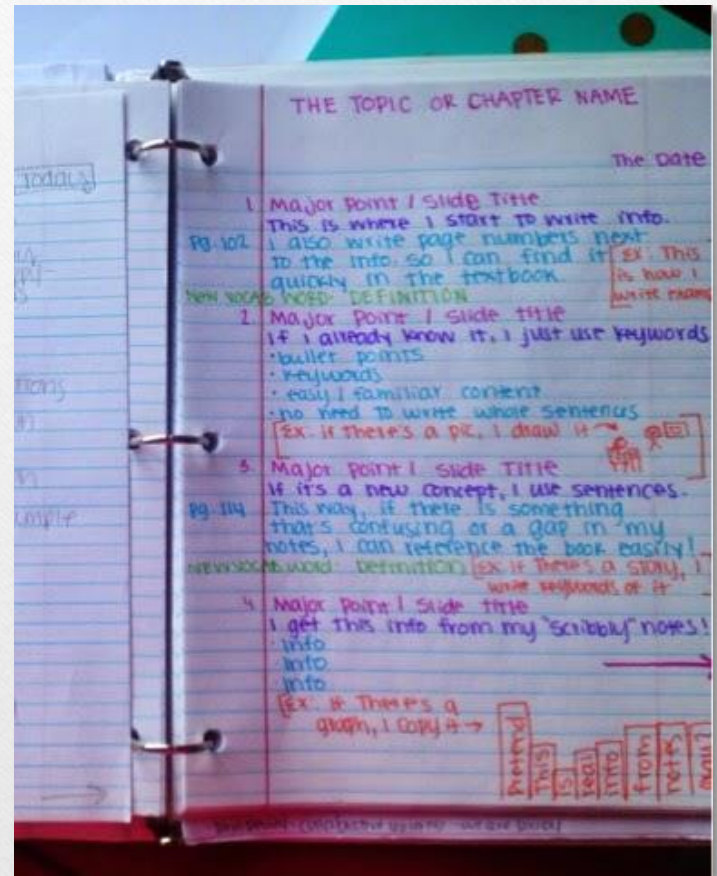 THE TOPIC OR CHAPTER NAME
The Date
1. Major Point / Slide Title
This is where I start to write info.
Pg. 102 I also write page numbers next
to the info. so I can find it
quickly in the textbook
[Ex: This
is how I
write
NEW VOCAB WORD: DEFINITION
2. Major Point / Slide title
If I already know it, I just use keywords
· bullet points
· keywords
· easy / familiar content
· no need to write whole sentences
[Ex: if there's a pic, I draw it →
3. Major Point / Slide Title
If it's a new concept, I use sentences.
Pg. 114 This way, if there is something
that's confusing or a gap in my
notes, I can reference the book easily!
NEW VOCAB WORD: Definition
[Ex: if there's a story, I
write keywords of it
4. Major Point / Slide title
I get this info from my "scribbly" notes!
· info
· info
· info
[Ex: if there's a
graph, I copy it →
Pretend
This
is
real
info
from
notes